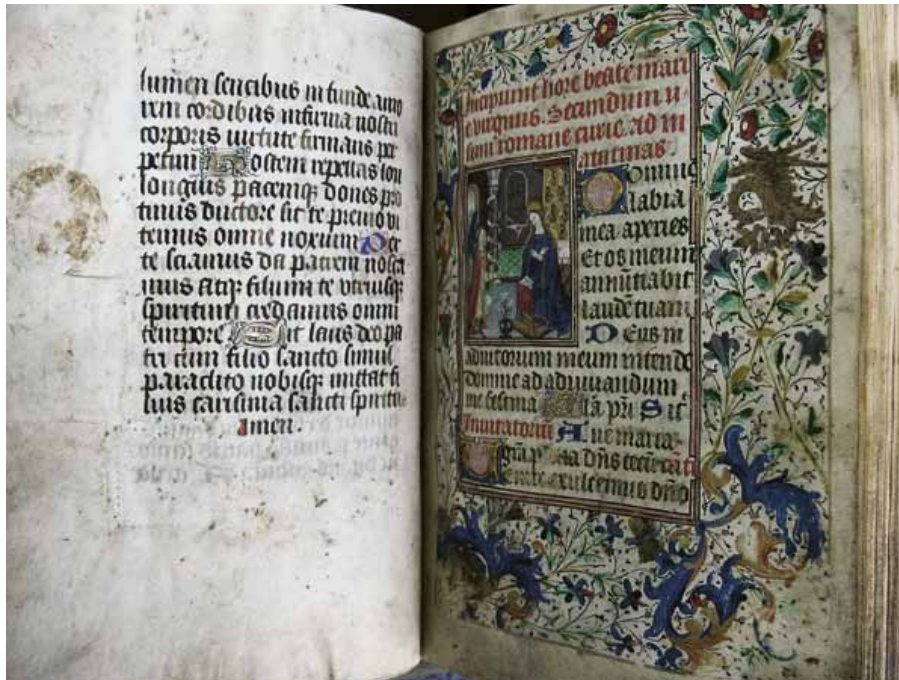 lumen sencibus infunde amo
rem cordibus infirma nostri
corporis virtute firmans per
petim Hostem repellas lon
longius pacemq dones pro
tinus ductore sit te previo vi
temus omne noxium Per
te sciamus da patrem nosca
mus atq filium te utriusq
spiritum credamus omni
tempore Sit laus deo pa
tri cum filio sancto simul
paraclito nobisq mittat fi
lius carisma sancti spiritus
Amen
Incipiunt hore beate mari
e virginis. Secundum u
sum romane curie. ad m
atutinas
Domine
labia
mea aperies
Et os meum
annuntiabit
laude tuam
Deus in
adiutorium meum intende
domine ad adiuvandum
me festina Glia pri Sic
Invitatoriu Ave maria
gra plena dns tecu
Venite exultemus dno